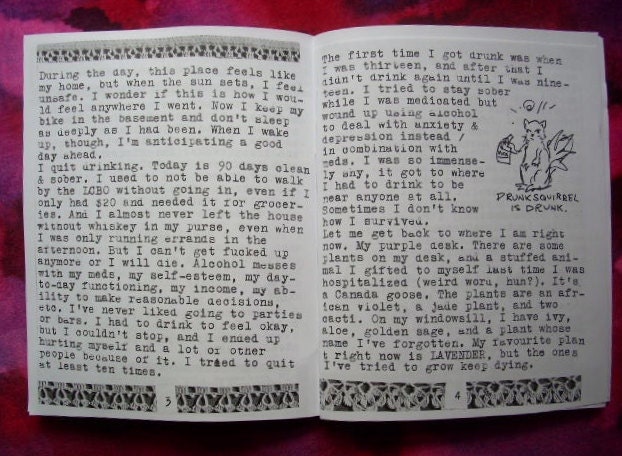 During the day, this place feels like
my home, but when the sun sets, I feel
unsafe. I wonder if this is how I wou-
ld feel anywhere I went. Now I keep my
bike in the basement and don't sleep
as deeply as I had been. When I wake
up, though, I'm anticipating a good
day ahead.
I quit drinking. Today is 90 days clean
& sober. I used to not be able to walk
by the LCBO without going in, even if I
only had $20 and needed it for grocer-
ies. And I almost never left the house
without whiskey in my purse, even when
I was only running errands in the
afternoon. But I can't get fucked up
anymore or I will die. Alcohol messes
with my meds, my self-esteem, my day-
to-day functioning, my income, my ab-
ility to make reasonable decisions,
etc. I've never liked going to parties
or bars. I had to drink to feel okay,
but I couldn't stop, and I ended up
hurting myself and a lot of other
people because of it. I tried to quit
at least ten times.
3
The first time I got drunk was when
I was thirteen, and after that I
didn't drink again until I was nine-
teen. I tried to stay sober
while I was medicated but
wound up using alcohol
to deal with anxiety &
depression instead /
in combination with
meds. I was so immense-
ly shy, it got to where
I had to drink to be
near anyone at all.
Sometimes I don't know
how I survived.
DRUNK SQUIRREL
IS DRUNK.
Let me get back to where I am right
now. My purple desk. There are some
plants on my desk, and a stuffed ani-
mal I gifted to myself last time I was
hospitalized (weird word, huh?). It's
a Canada goose. The plants are an afr-
ican violet, a jade plant, and two
cacti. On my windowsill, I have ivy,
aloe, golden sage, and a plant whose
name I've forgotten. My favourite plan
t right now is LAVENDER, but the ones
I've tried to grow keep dying.
4